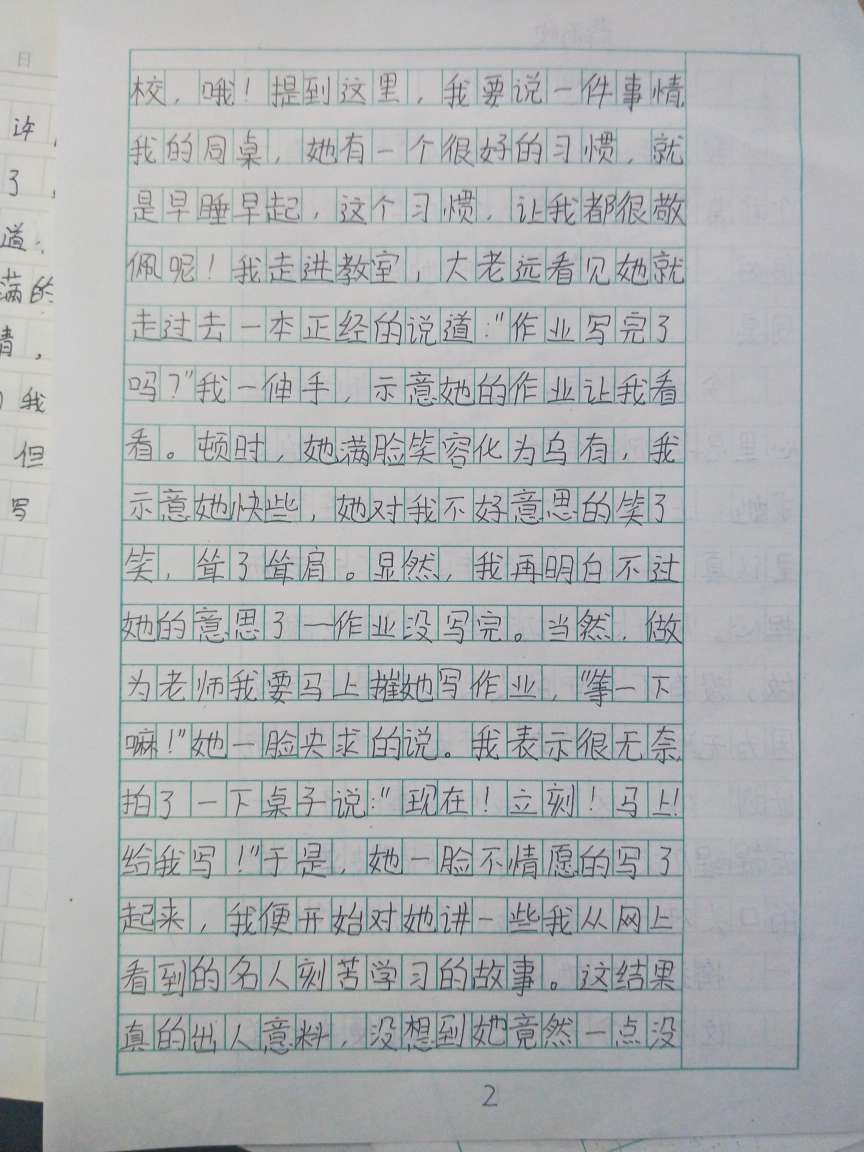 校，哦！提到这里，我要说一件事情
我的同桌，她有一个很好的习惯，就
是早睡早起，这个习惯，让我都很敬
佩呢！我走进教室，大老远看见她就
走过去一本正经的说道："作业写完了
吗？"我一伸手，示意她的作业让我看
看。顿时，她满脸笑容化为乌有，我
示意她快些，她对我不好意思的笑了
笑，耸了耸肩。显然，我再明白不过
她的意思了一作业没写完。当然，做
为老师我要马上摧她写作业，"等一下
嘛！"她一脸央求的说。我表示很无奈
拍了一下桌子说："现在！立刻！马上！
给我写！"于是，她一脸不情愿的写了
起来，我便开始对她讲一些我从网上
看到的名人刻苦学习的故事。这结果
真的出人意料，没想到她竟然一点没
2
日
了，
道：
满的
我
但
写